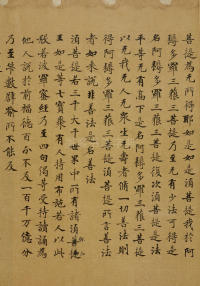 菩提為无所得耶如是如是須菩提我於阿
耨多羅三藐三菩提乃至无有少法可得是
名阿耨多羅三藐三菩提復次須菩提是法
平等无有高下是名阿耨多羅三藐三菩提
以无我无人无眾生无壽者脩一切善法則
得阿耨多羅三藐三菩提須菩提所言善法
者如來說非善法是名善法
須菩提若三千大千世界中所有諸須彌山
王如是等七寶聚有人持用布施若人以此
般若波羅蜜經乃至四句偈等受持讀誦為
他人說於前福德百分不及一百千万億分
乃至筭數譬喻所不能及